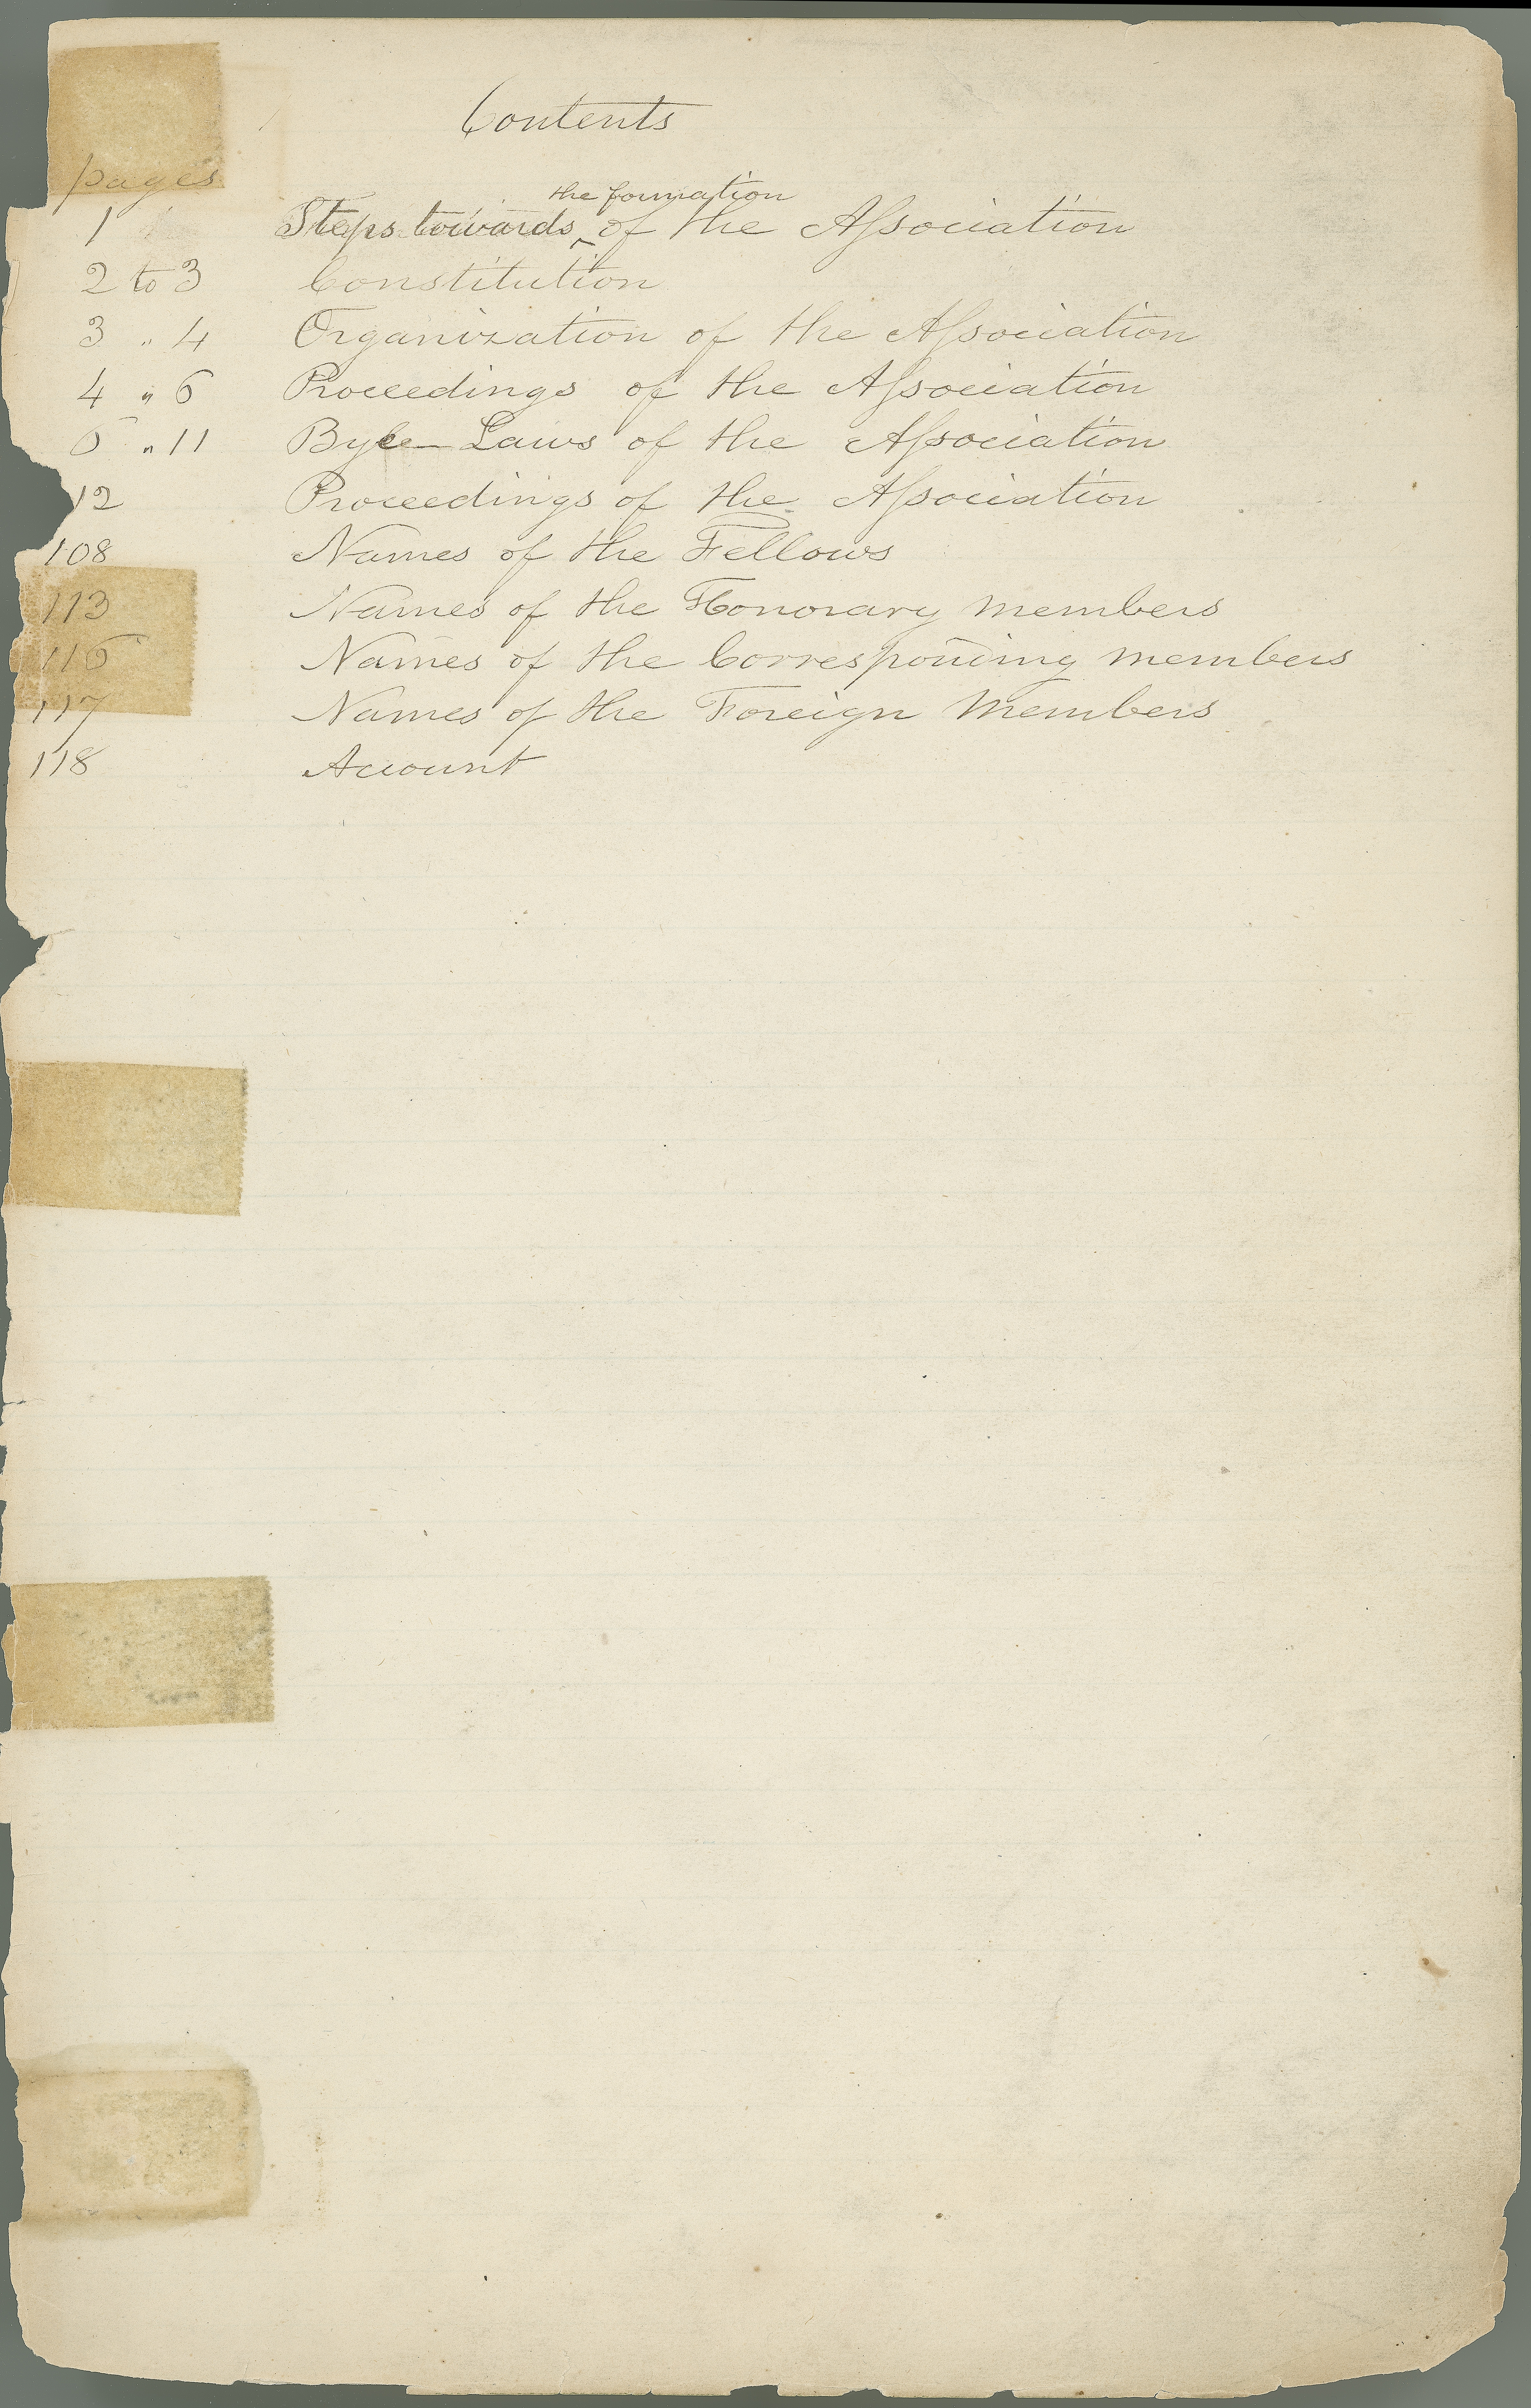 Contents
pages
the formation
1 Steps towards ^ of the Association
2 to 3 Constitution
3 „ 4 Organization of the Association
4 „ 6 Proceedings of the Association
6 „ 11 Bye-Laws of the Association
12 Proceedings of the Association
108 Names of the Fellows
113 Names of the Honorary members
116 Names of the Corresponding members
117 Names of the Foreign Members
118 Account